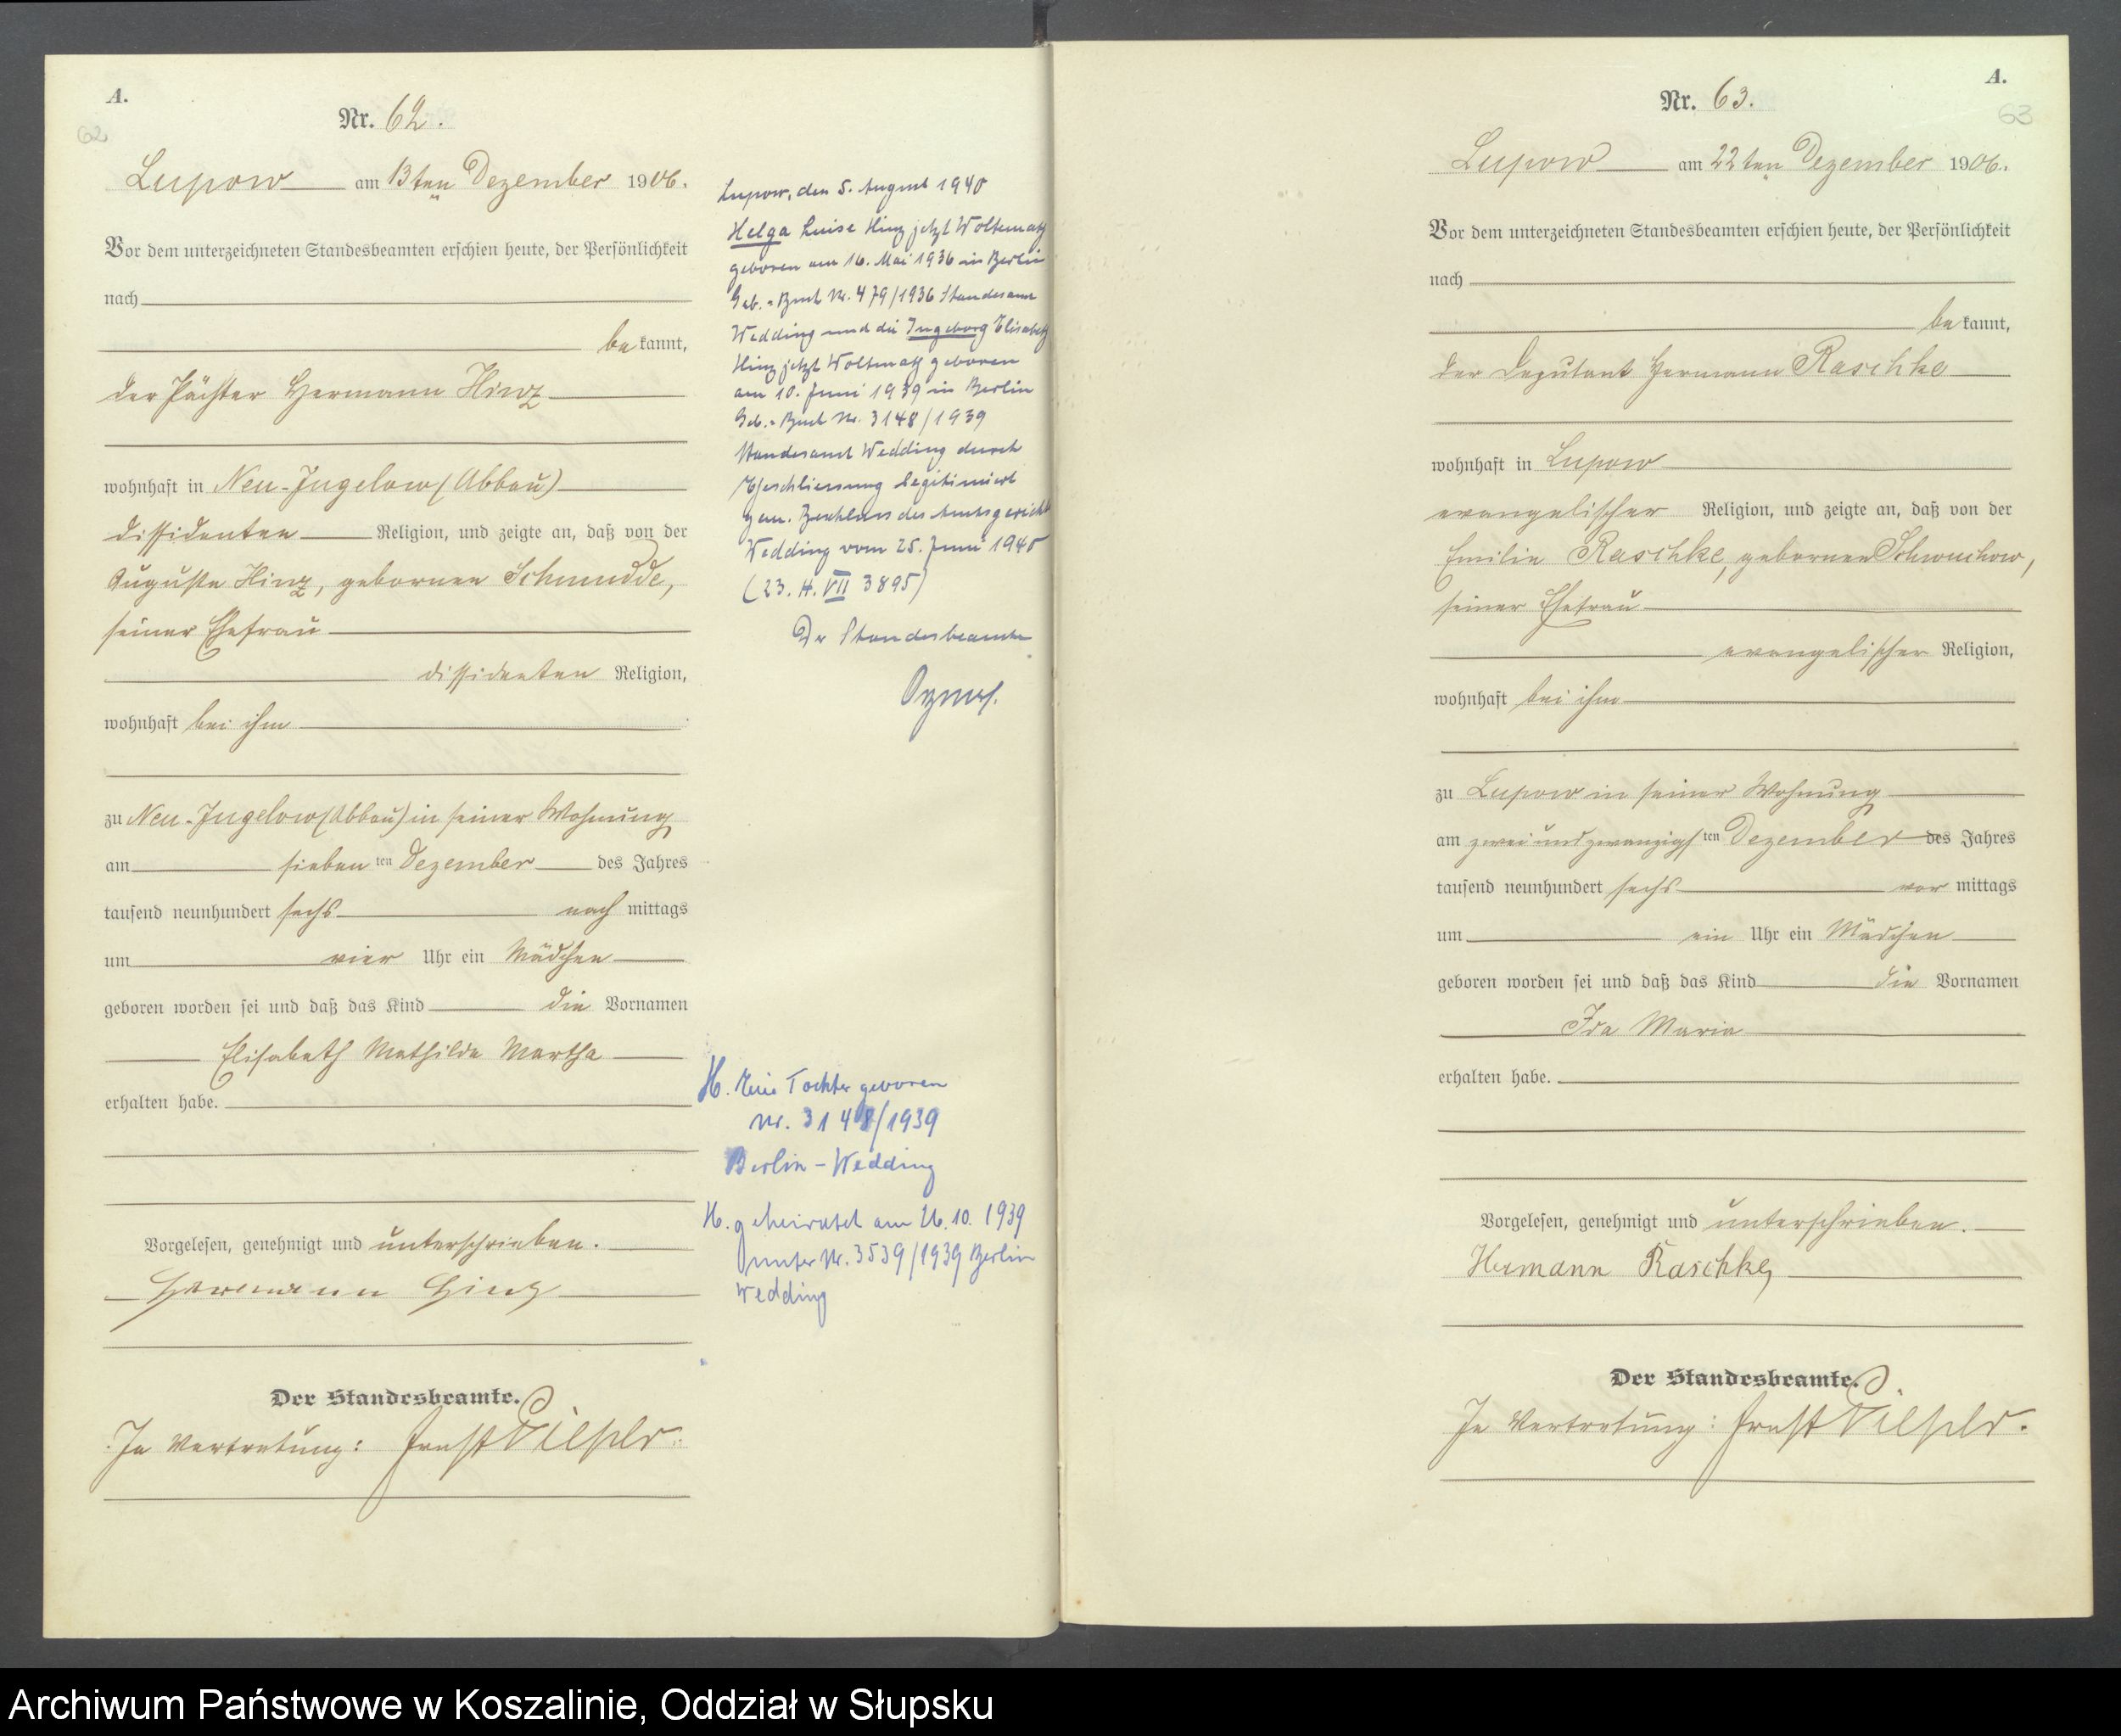 A.
Nr. 62.
62
Lupow am 13ten Dezember 1906.
Vor dem unterzeichneten Standesbeamten erschien heute, der Persönlichkeit
nach
be kannt,
der Pächter Hermann Hinz
wohnhaft in Neu-Jugelow (Abbau)
dissidenten Religion, und zeigte an, daß von der
Auguste Hinz, geborenen Schmudde,
seiner Ehefrau
dissidenten Religion,
wohnhaft bei ihm
zu Neu-Jugelow (Abbau) in seiner Wohnung
am sieben ten Dezember des Jahres
tausend neunhundert sechs nach mittags
um vier Uhr ein Mädchen
geboren worden sei und daß das Kind die Vornamen
Elisabeth Mathilde Martha
erhalten habe.
Vorgelesen, genehmigt und unterschrieben.
Hermann Hinz
Der Standesbeamte.
In Vertretung: Ernst
Lupow, den 5. August 1940
Helga Luise Hinz jetzt Woltmath
geboren am 16. Mai 1936 in Berlin
Geb.-Buch Nr. 479/1936 Standesamt
Wedding und die Ingeborg Elisabeth
Hinz jetzt Woltmath geboren
am 10. Juni 1939 in Berlin
Geb.-Buch Nr. 3148/1939
Standesamt Wedding durch
Eheschliessung legitimiert
gem. Beschluss des Amtsgerichts
Wedding vom 25. Juni 1940
(23. H. VII 3895)
Der Standesbeamte
H. Eine Tochter geboren
Nr. 3148/1939
Berlin-Wedding
H. geheiratet am 26.10.1939
unter Nr. 3539/1939 Berlin
Wedding
A.
Nr. 63.
63
Lupow am 22ten Dezember 1906.
Vor dem unterzeichneten Standesbeamten erschien heute, der Persönlichkeit
nach
be kannt,
der Deputant Hermann Raschke
wohnhaft in Lupow
evangelischer Religion, und zeigte an, daß von der
Emilie Raschke, geborenen Schwuchow,
seiner Ehefrau
evangelischer Religion,
wohnhaft bei ihm
zu Lupow in seiner Wohnung
am zwei und zwanzigs ten Dezember des Jahres
tausend neunhundert sechs vor mittags
um ein Uhr ein Mädchen
geboren worden sei und daß das Kind die Vornamen
Ida Maria
erhalten habe.
Vorgelesen, genehmigt und unterschrieben.
Hermann Raschke
Der Standesbeamte.
In Vertretung: Ernst
Archiwum Państwowe w Koszalinie, Oddział w Słupsku